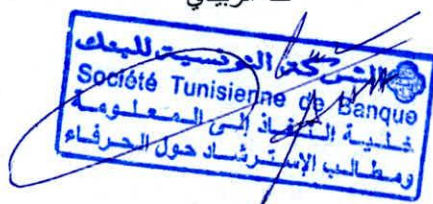 الشركة التونسية للبنك
Société Tunisienne de Banque
خلية النفاذ إلى المعلومة
ومطالب الإسترشاد حول الحرفاء